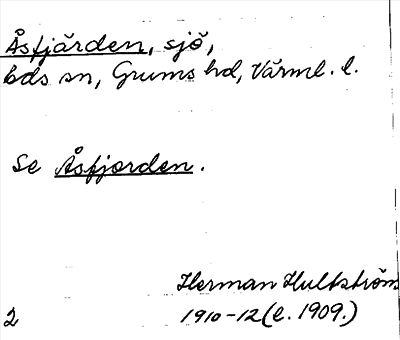 Åsfjärden, sjö,
bds sn, Grums hd, Värml. l.
Se Åsfjorden.
Herman Hultström
1910-12 (l. 1909.)
2